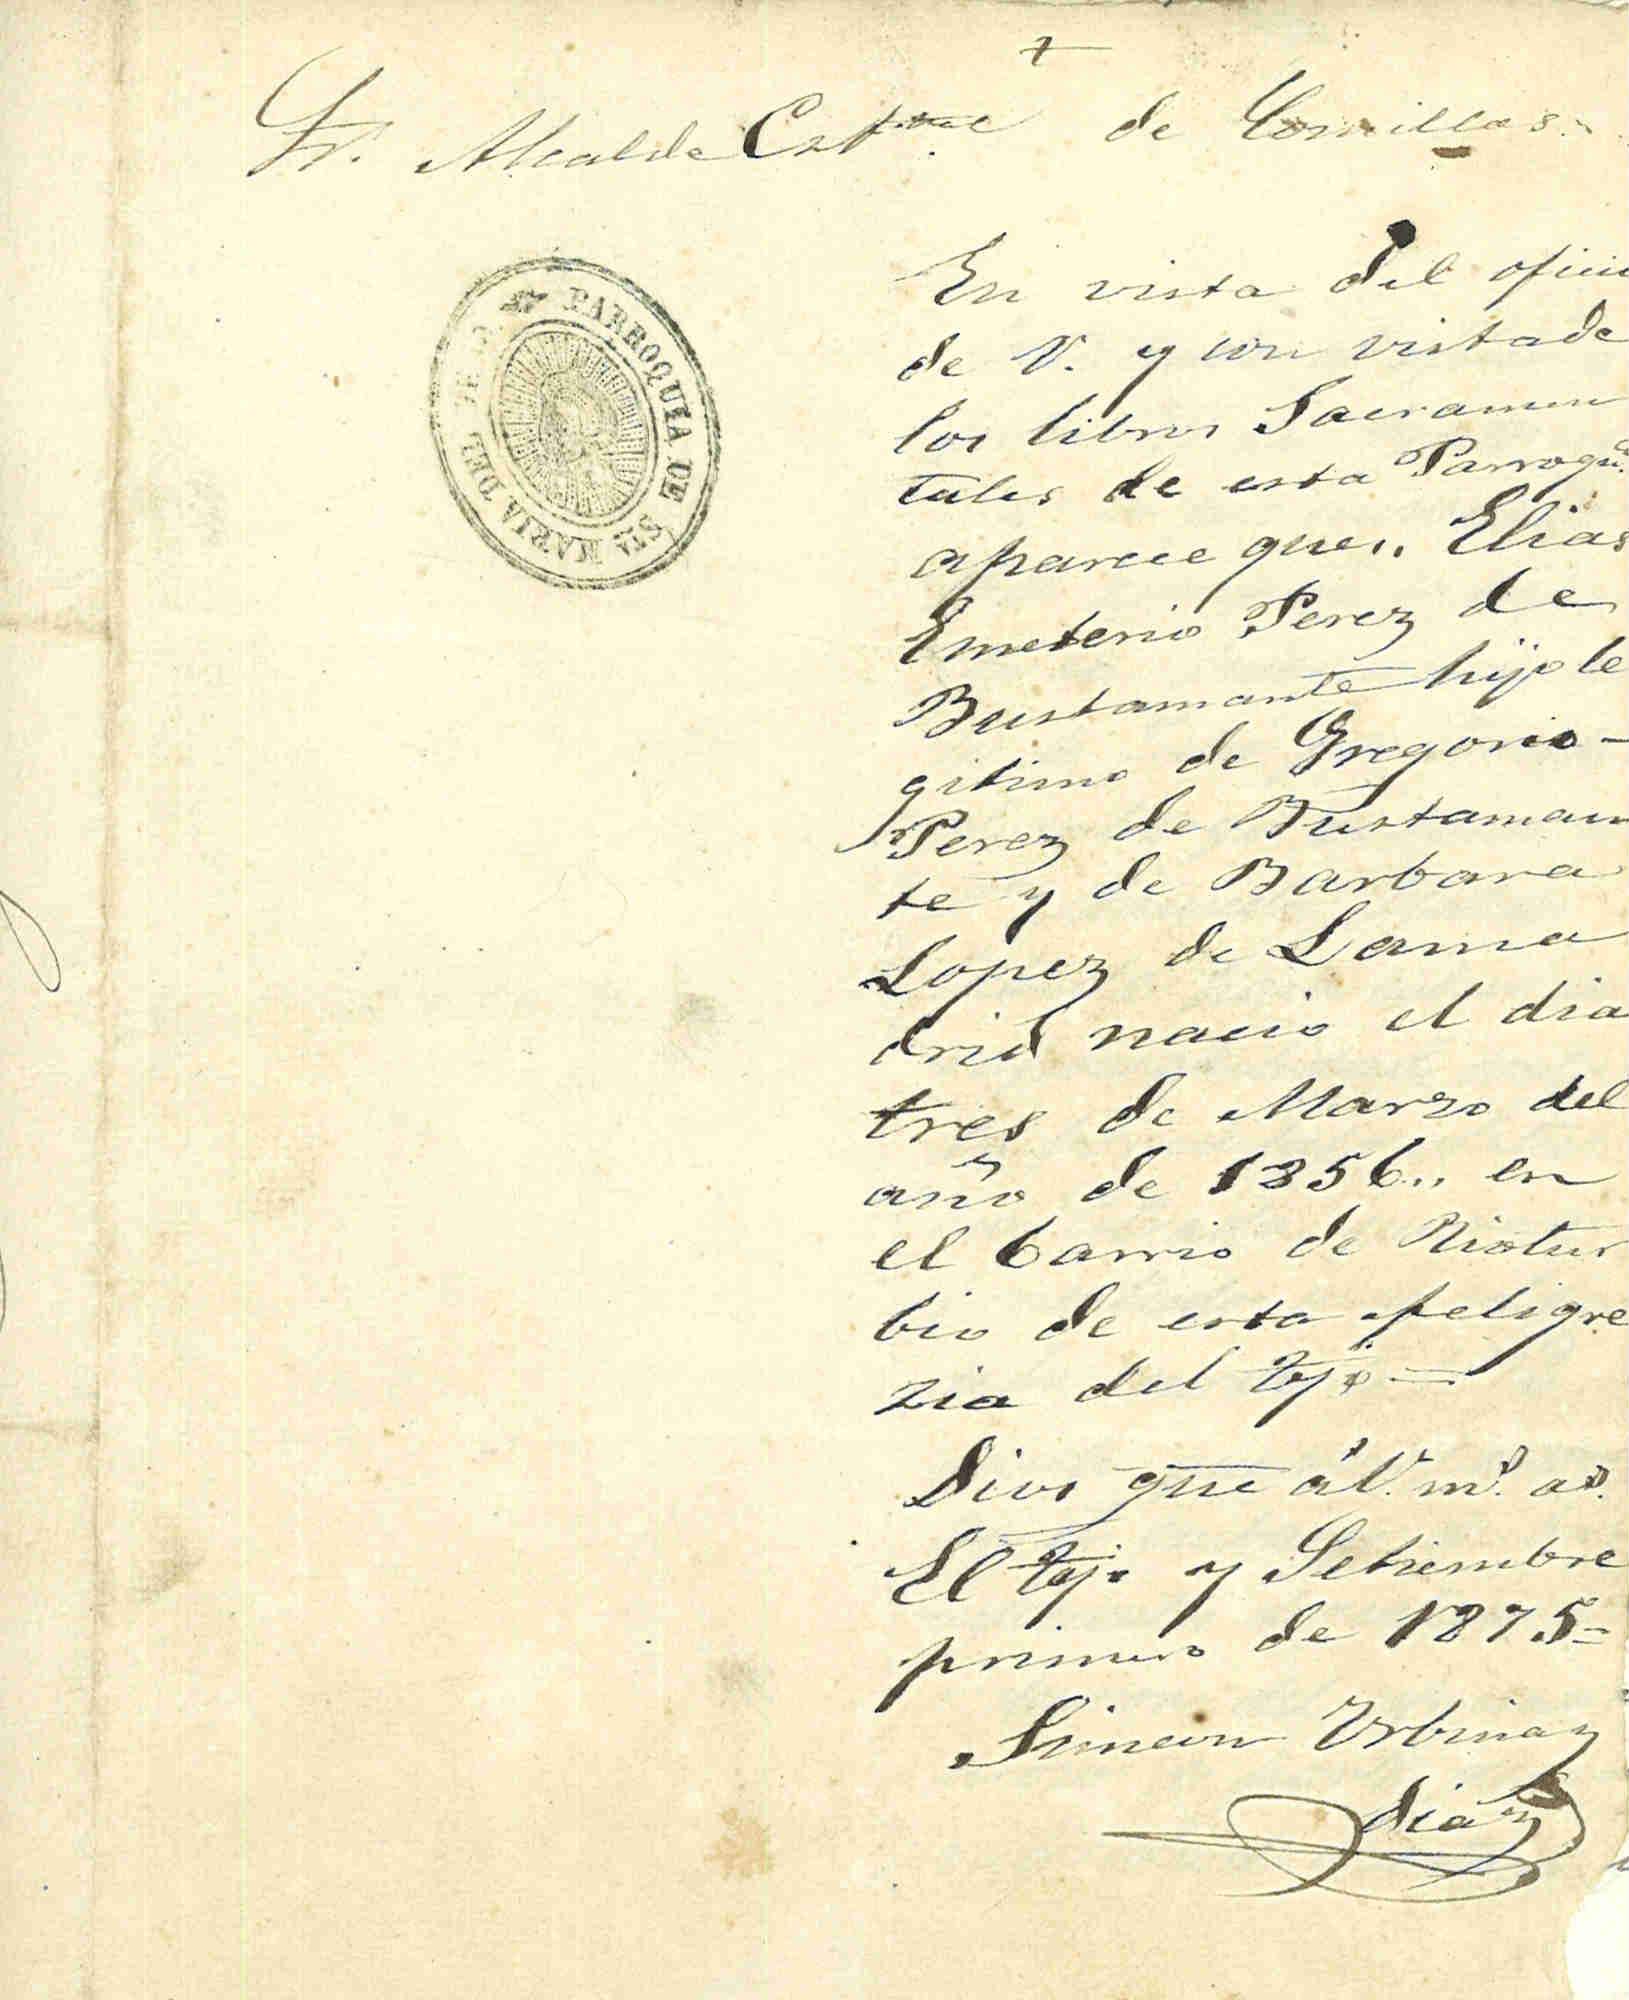 Sr. Alcalde de Comillas.
PARROQUIA DE STA MARIA DEL
En vista del oficio
de V. y con vista de
los libros Sacramen
tales de esta Parroqa.
aparece que,, Elias
Emeterio Perez de
Bustamante hijo le
gitimo de Gregorio -
Perez de Bustaman
te y de Barbara
Lopez de Lama
drid nacio el dia
tres de Marzo del
año de 1856,, en
el barrio de Riotur
bio de esta feligre
zia del Tejo =
Dios gue á V. ms. as.
El Tejo y Setiembre
primero de 1875=
Simeon Urbina y
diaz